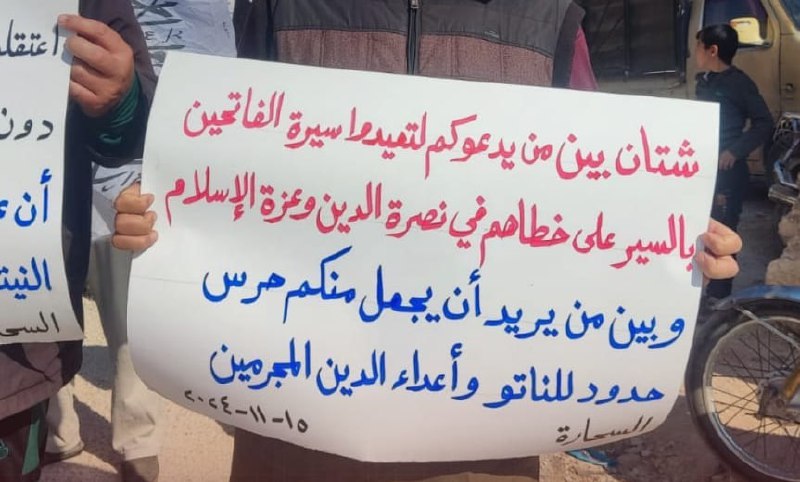 شتان بين من يدعوكم لتعيدوا سيرة الفاتحين
بالسير على خطاهم في نصرة الدين وعزة الإسلام
وبين من يريد أن يجعل منكم حرس
حدود للناتو وأعداء الدين المجرمين
السحارة
١٥-١١-٢٠٢٤
دون